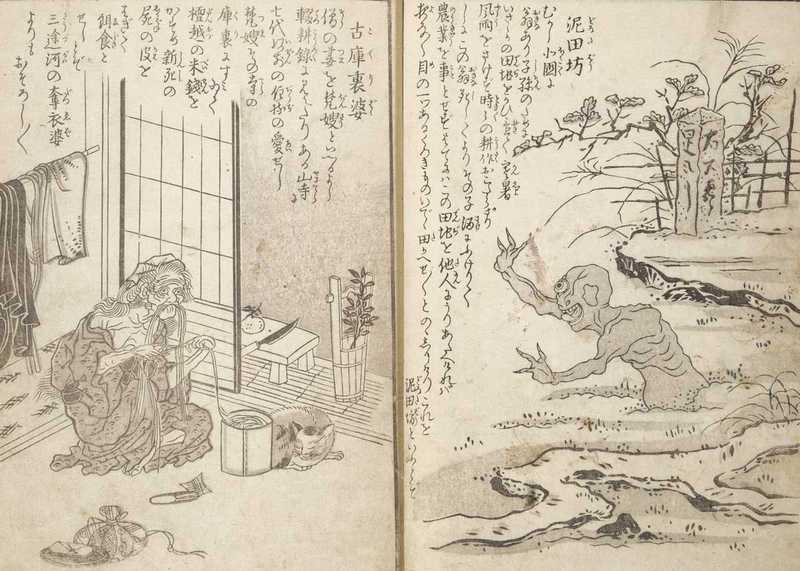 泥田坊
むかし北国に
翁あり子孫のために
いさゝかの田地をかひ置て寒暑
風雨をさけず時々の耕作おこたらざり
しにこの翁死してよりその子酒にふけりて
農業を事とせずはてにはこの田地を他人にうりあたへければ
夜な〱目の一つあるくろきものいでゝ田かへせ〱とのゝしりけりこれを
泥田坊といふとぞ
古庫裏婆
僧の妻を梵嫂といへるよし
輟耕録に見えたりある山寺に
七代以前の住持の愛せし
梵嫂その寺の
庫裏にすみゐて
檀越の米銭を
かすめ新死の
屍の皮を
はぎて
餌食と
せしとぞ
三途河の奪衣婆
よりもおそろし〱